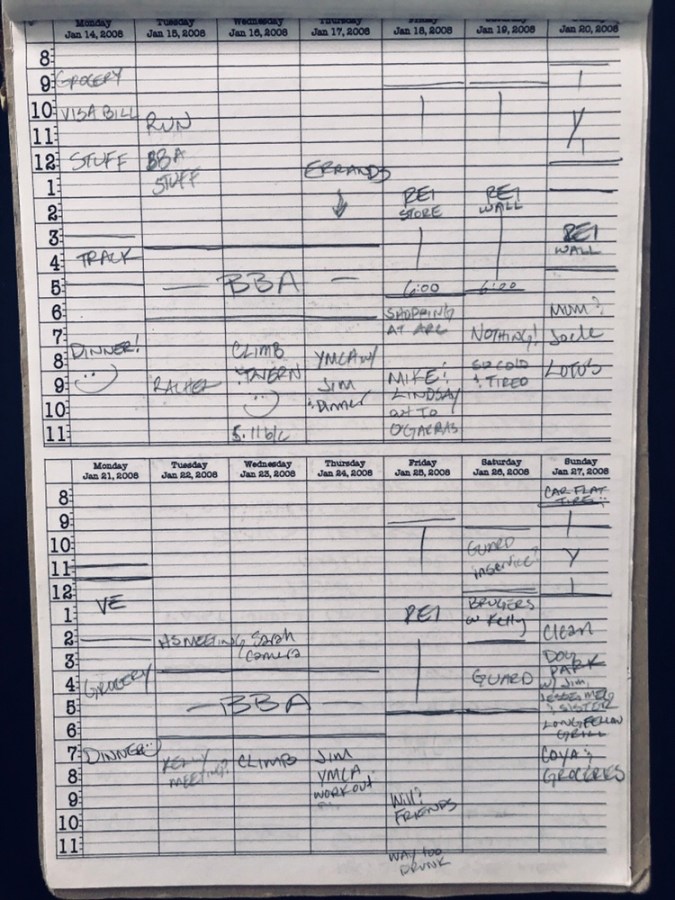 Monday Tuesday Wednesday Thursday Friday Saturday Sunday
Jan 14, 2008 Jan 15, 2008 Jan 16, 2008 Jan 17, 2008 Jan 18, 2008 Jan 19, 2008 Jan 20, 2008
8
9 GROCERY
10 VISA BILL RUN
11 Y
12 STUFF BBA ERRANDS
1 STUFF REI REI
2 STORE WALL
3 REI
4 TRACK WALL
5 BBA 6:00 6:00
6 SHOPPING MOM?
7 AT ARC NOTHING!
8 DINNER! CLIMB YMCA SO COLD LOTUS
9 RACHEL JIM MIKE & & TIRED
10 DINNER LINDSAY
11 5.11 b/c OUT TO
O'GARAS
Monday Tuesday Wednesday Thursday Friday Saturday Sunday
Jan 21, 2008 Jan 22, 2008 Jan 23, 2008 Jan 24, 2008 Jan 25, 2008 Jan 26, 2008 Jan 27, 2008
8 CAR FLAT
9 TIRE
10 GUARD Y
11 inservice?
12 BRUGERS
1 VE REI w/ Kelly
2 HS MEETING Sarah Clean
3 Camera DOG
4 GROCERY GUARD PARK
5 BBA w/ Jim,
6 & SISTER
LONGFELLOW
GRILL
7 DINNER KELLY CLIMB JIM
8 MEETING? YMCA GROCERIES
9 WORKOUT WILL?
10 FRIENDS
11
WAY TOO
DRUNK